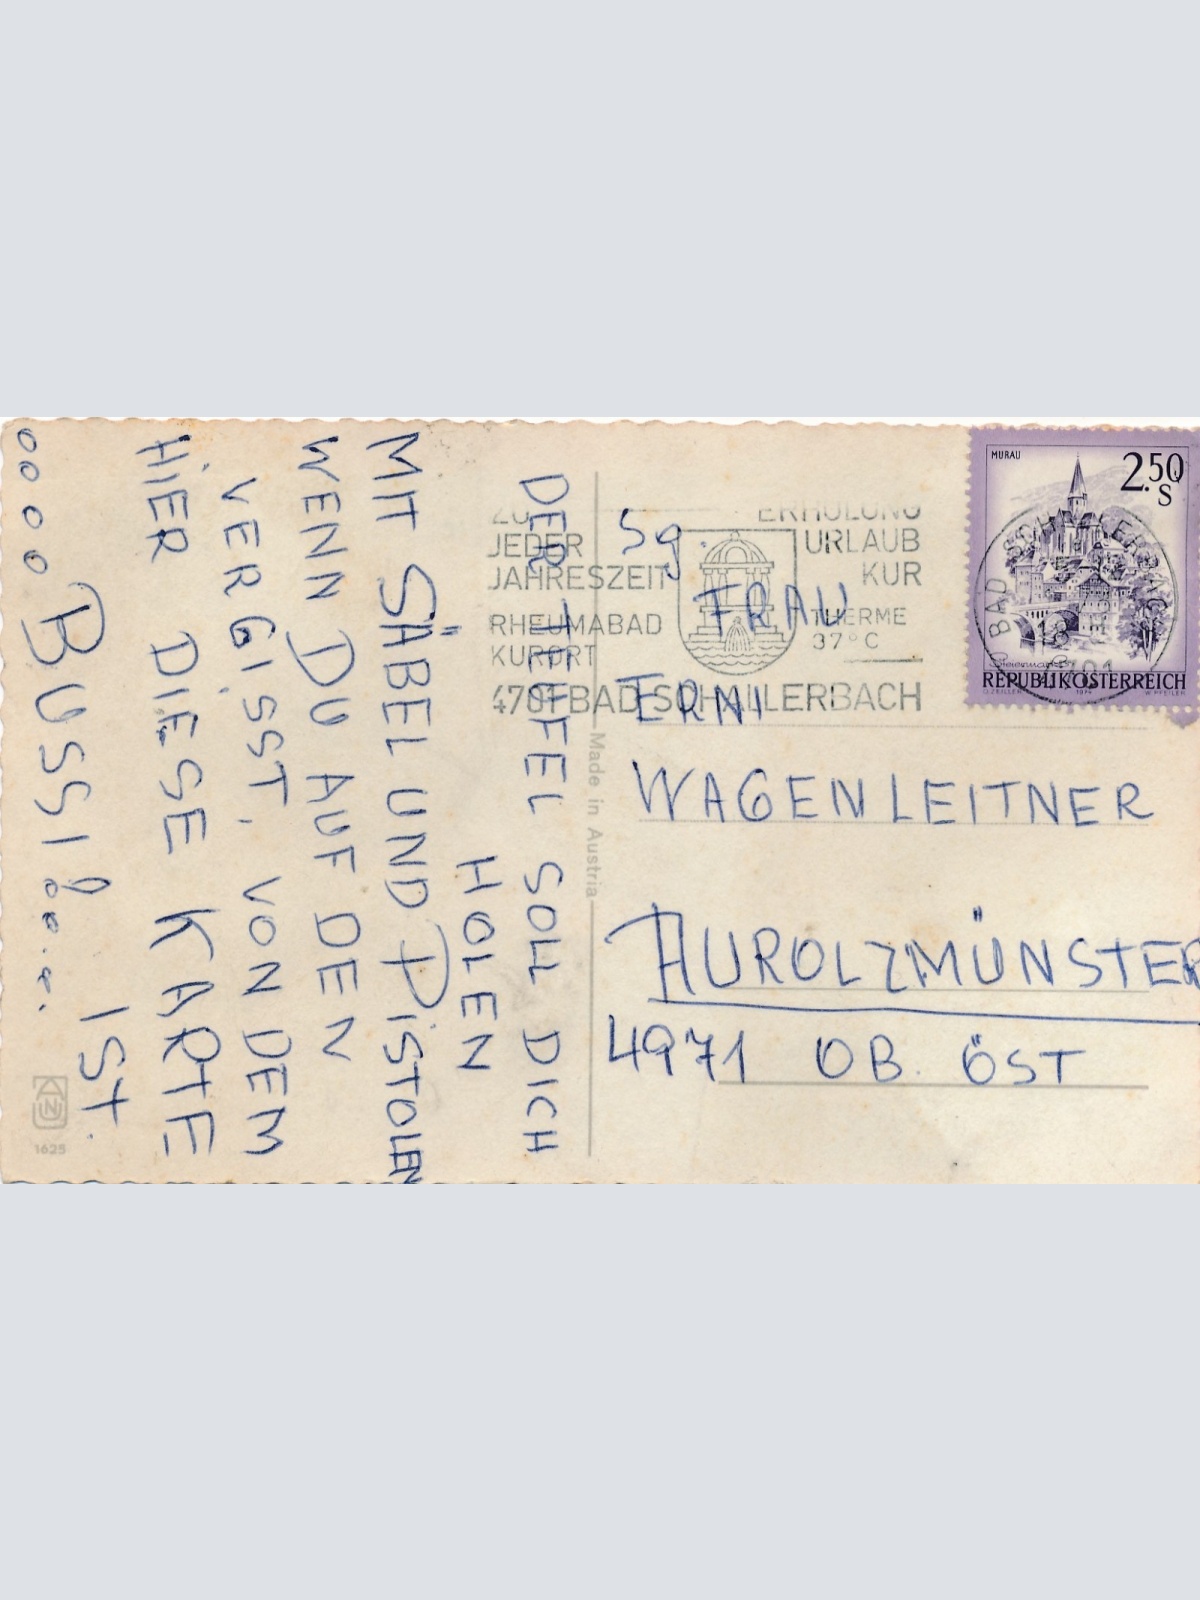 DER TEUFEL SOLL DICH
HOLEN
MIT SÄBEL UND PISTOLEN
WENN DU AUF DEN
VERGISST, VON DEM
HIER DIESE KARTE
IST.
0000 BUSSI!
Made in Austria
1625
JEDER
JAHRESZEIT
RHEUMABAD
KURORT
ERHOLUNG
URLAUB
KUR
THERME
37° C
4701 BAD SCHALLERBACH
Sg
FRAU
ERNI
WAGENLEITNER
AUROLZMÜNSTER
4971 OB. ÖST
MURAU
2.50
S
Steiermark
REPUBLIK ÖSTERREICH
G. ZEILLER 1974 W. PFEILER
4701 BAD SCHALLERBACH